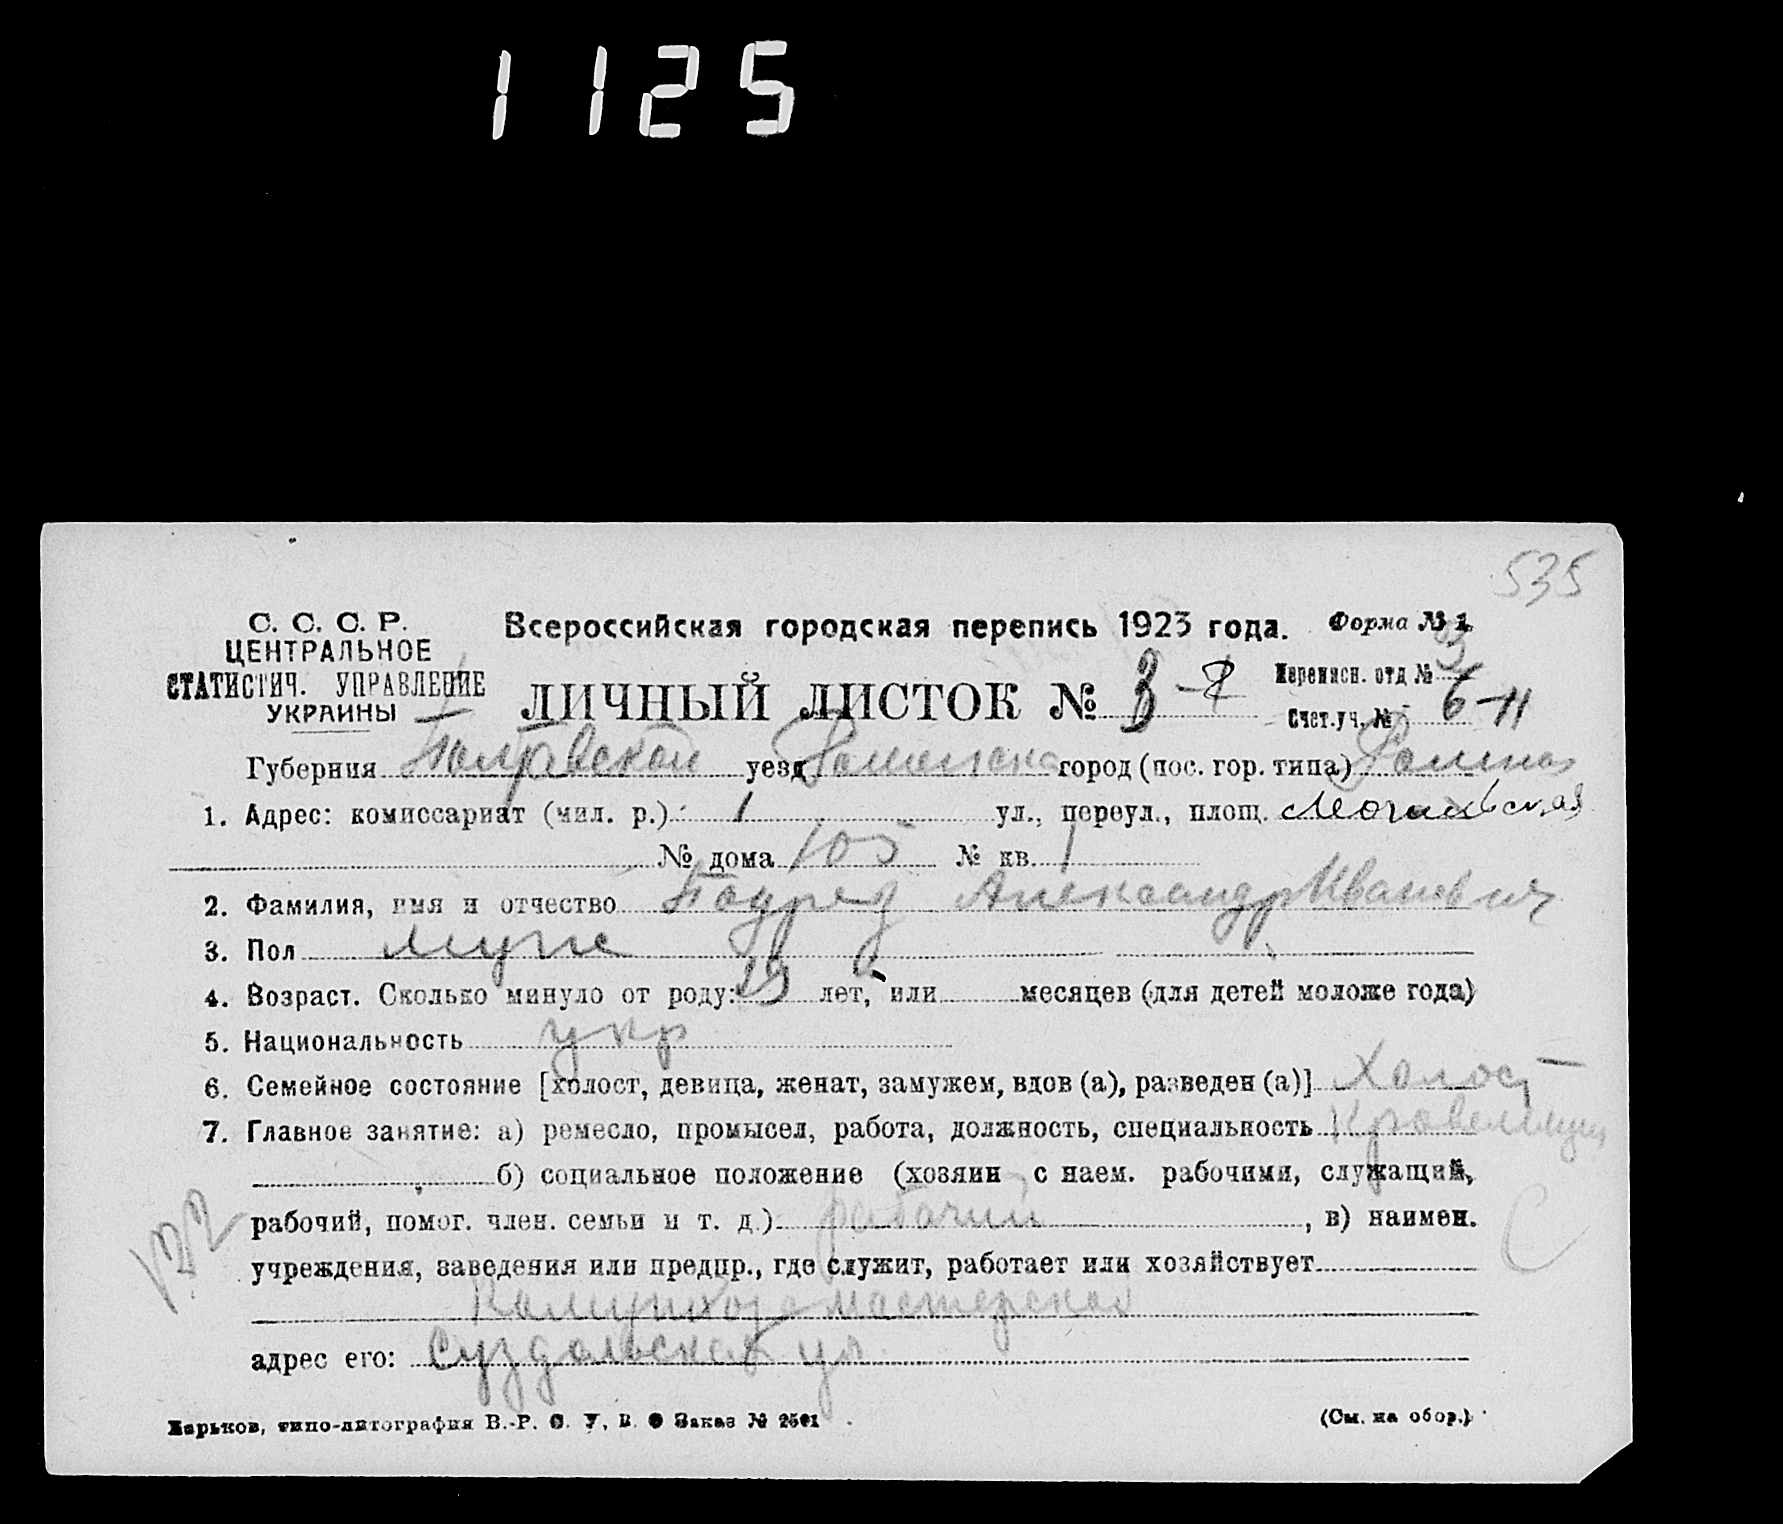 1125
535
С. С. С. Р.
ЦЕНТРАЛЬНОЕ
СТАТИСТИЧ. УПРАВЛЕНИЕ
УКРАИНЫ
Всероссийская городская перепись 1923 года. Форма № 1.
ЛИЧНЫЙ ЛИСТОК № 3 -
Переписн. отд № 3
Счет.уч. № 6-11
Губерния Полтавской уезд Роменска город (пос. гор. типа) Ромны
1. Адрес: комиссариат (мил. р.) 1 ул., переул., площ.
№ дома 105 № кв. 1
2. Фамилия, имя и отчество Александр Иванович
3. Пол муж
4. Возраст. Сколько минуло от роду: 19 лет, или месяцев (для детей моложе года)
5. Национальность укр
6. Семейное состояние [холост, девица, женат, замужем, вдов (а), разведен (а)] Холост
7. Главное занятие: а) ремесло, промысел, работа, должность, специальность Кровельщик
б) социальное положение (хозяин с наем. рабочими, служащий,
рабочий, помог. член. семьи и т. д.) рабочий , в) наимен.
учреждения, заведения или предпр., где служит, работает или хозяйствует
мастерская
адрес его: Суздальская ул
С
Харьков, типо-литография В.-Р. О. У, В. О Заказ № 2501
(См. на обор.)